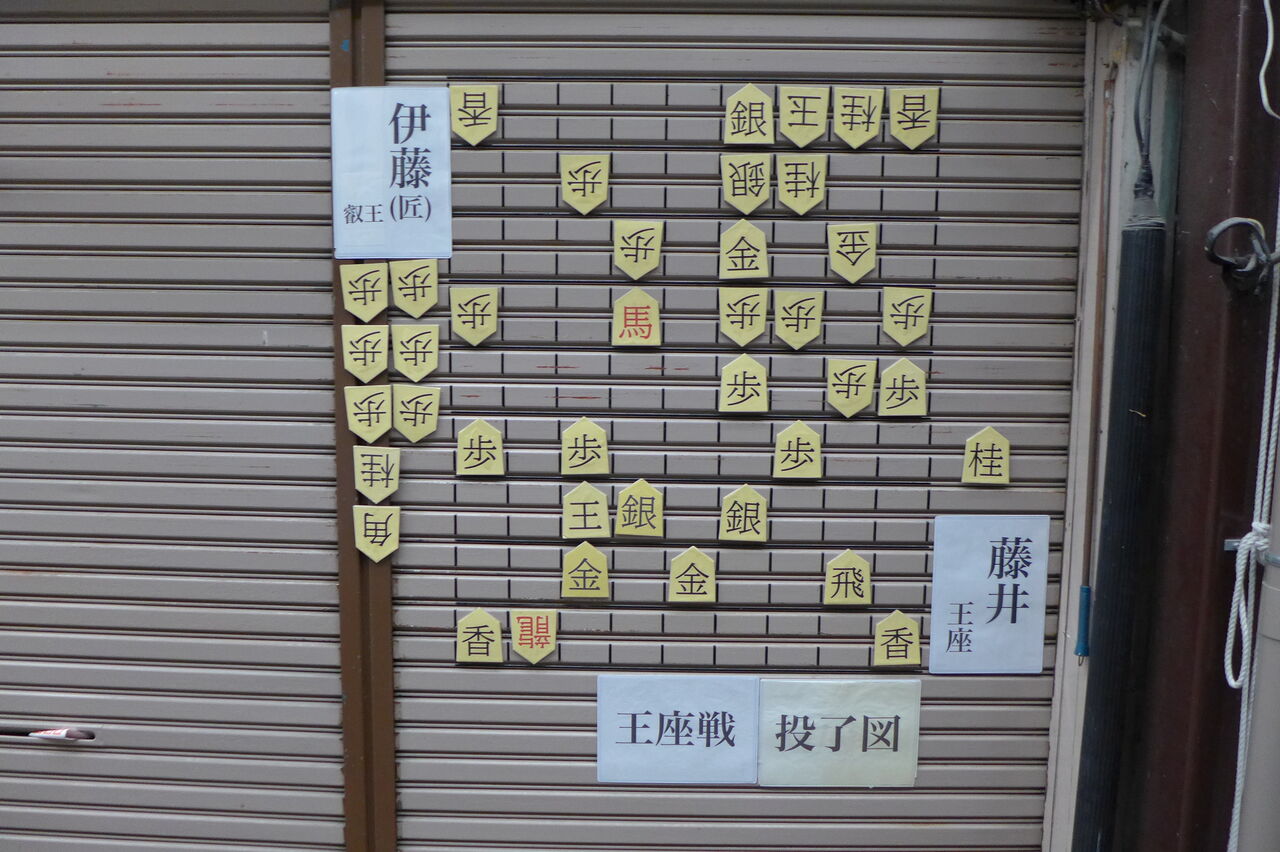 伊藤(匠)
叡王
香 銀 玉 桂 香
歩 銀 桂
歩 金 金
歩 馬 歩 歩 歩
歩 歩 歩
歩 歩 歩
王 銀 銀
金 金 飛
香 龍 香
歩 歩
歩 歩
歩 歩
桂
角
桂
藤井
王座
王座戦
投了図